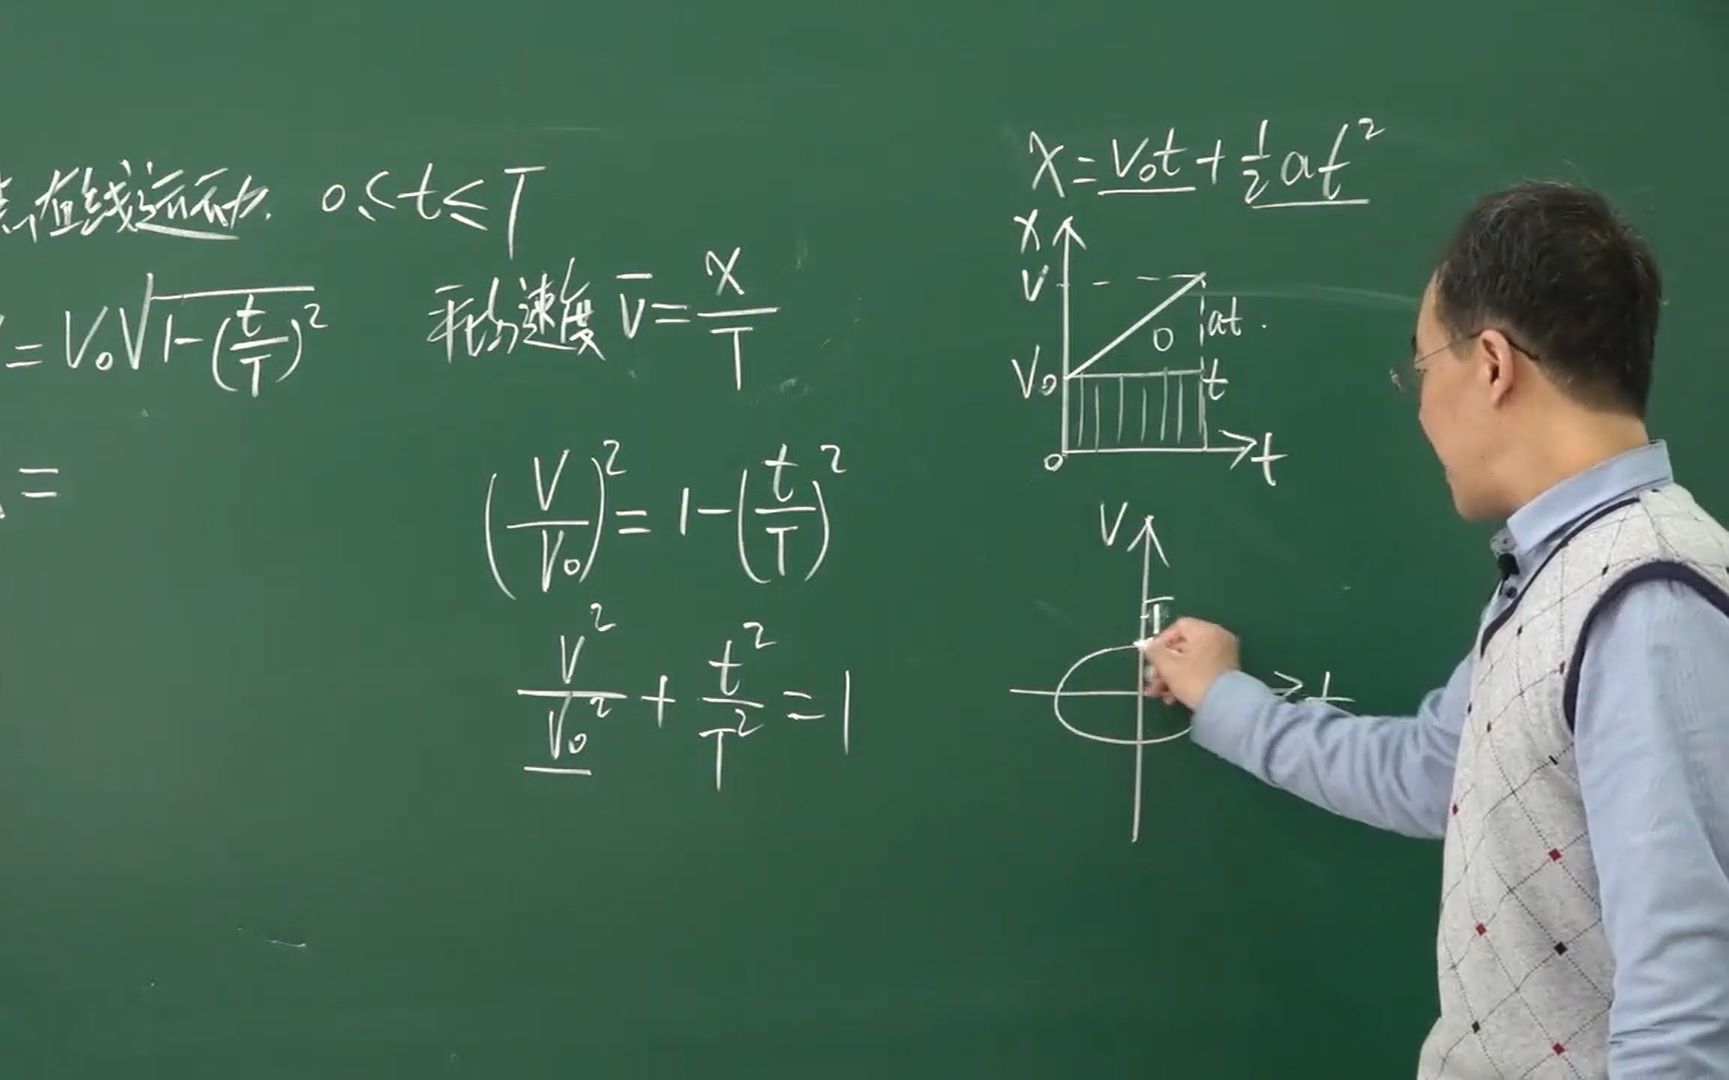 直线运动. 0≤t≤T
= V₀√1-(t/T)²
平均速度 v̄ = x/T
=
(V/V₀)² = 1-(t/T)²
V²/V₀² + t²/T² = 1
x = V₀t + ½at²
x
V
at
0
V₀
t
0
t
V
t